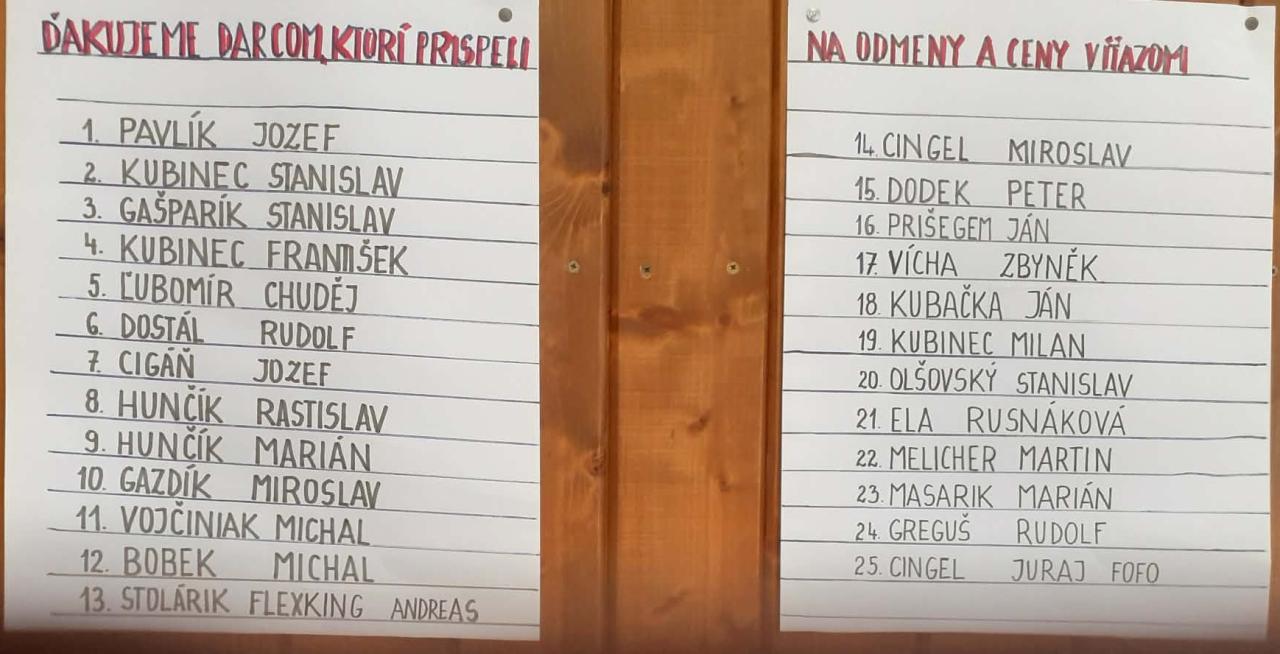 ĎAKUJEME DARCOM, KTORÍ PRISPELI
1. PAVLÍK JOZEF
2. KUBINEC STANISLAV
3. GAŠPARÍK STANISLAV
4. KUBINEC FRANTIŠEK
5. ĽUBOMÍR CHUDĚJ
6. DOSTÁL RUDOLF
7. CIGÁŇ JOZEF
8. HUNČÍK RASTISLAV
9. HUNČÍK MARIÁN
10. GAZDÍK MIROSLAV
11. VOJČINIAK MICHAL
12. BOBEK MICHAL
13. STOLÁRIK FLEXKING ANDREAS
NA ODMENY A CENY VÍŤAZOM
14. CINGEL MIROSLAV
15. DODEK PETER
16. PRIŠEGEM JÁN
17. VÍCHA ZBYNĚK
18. KUBAČKA JÁN
19. KUBINEC MILAN
20. OLŠOVSKÝ STANISLAV
21. ELA RUSNÁKOVÁ
22. MELICHER MARTIN
23. MASARIK MARIÁN
24. GREGUŠ RUDOLF
25. CINGEL JURAJ FOFO